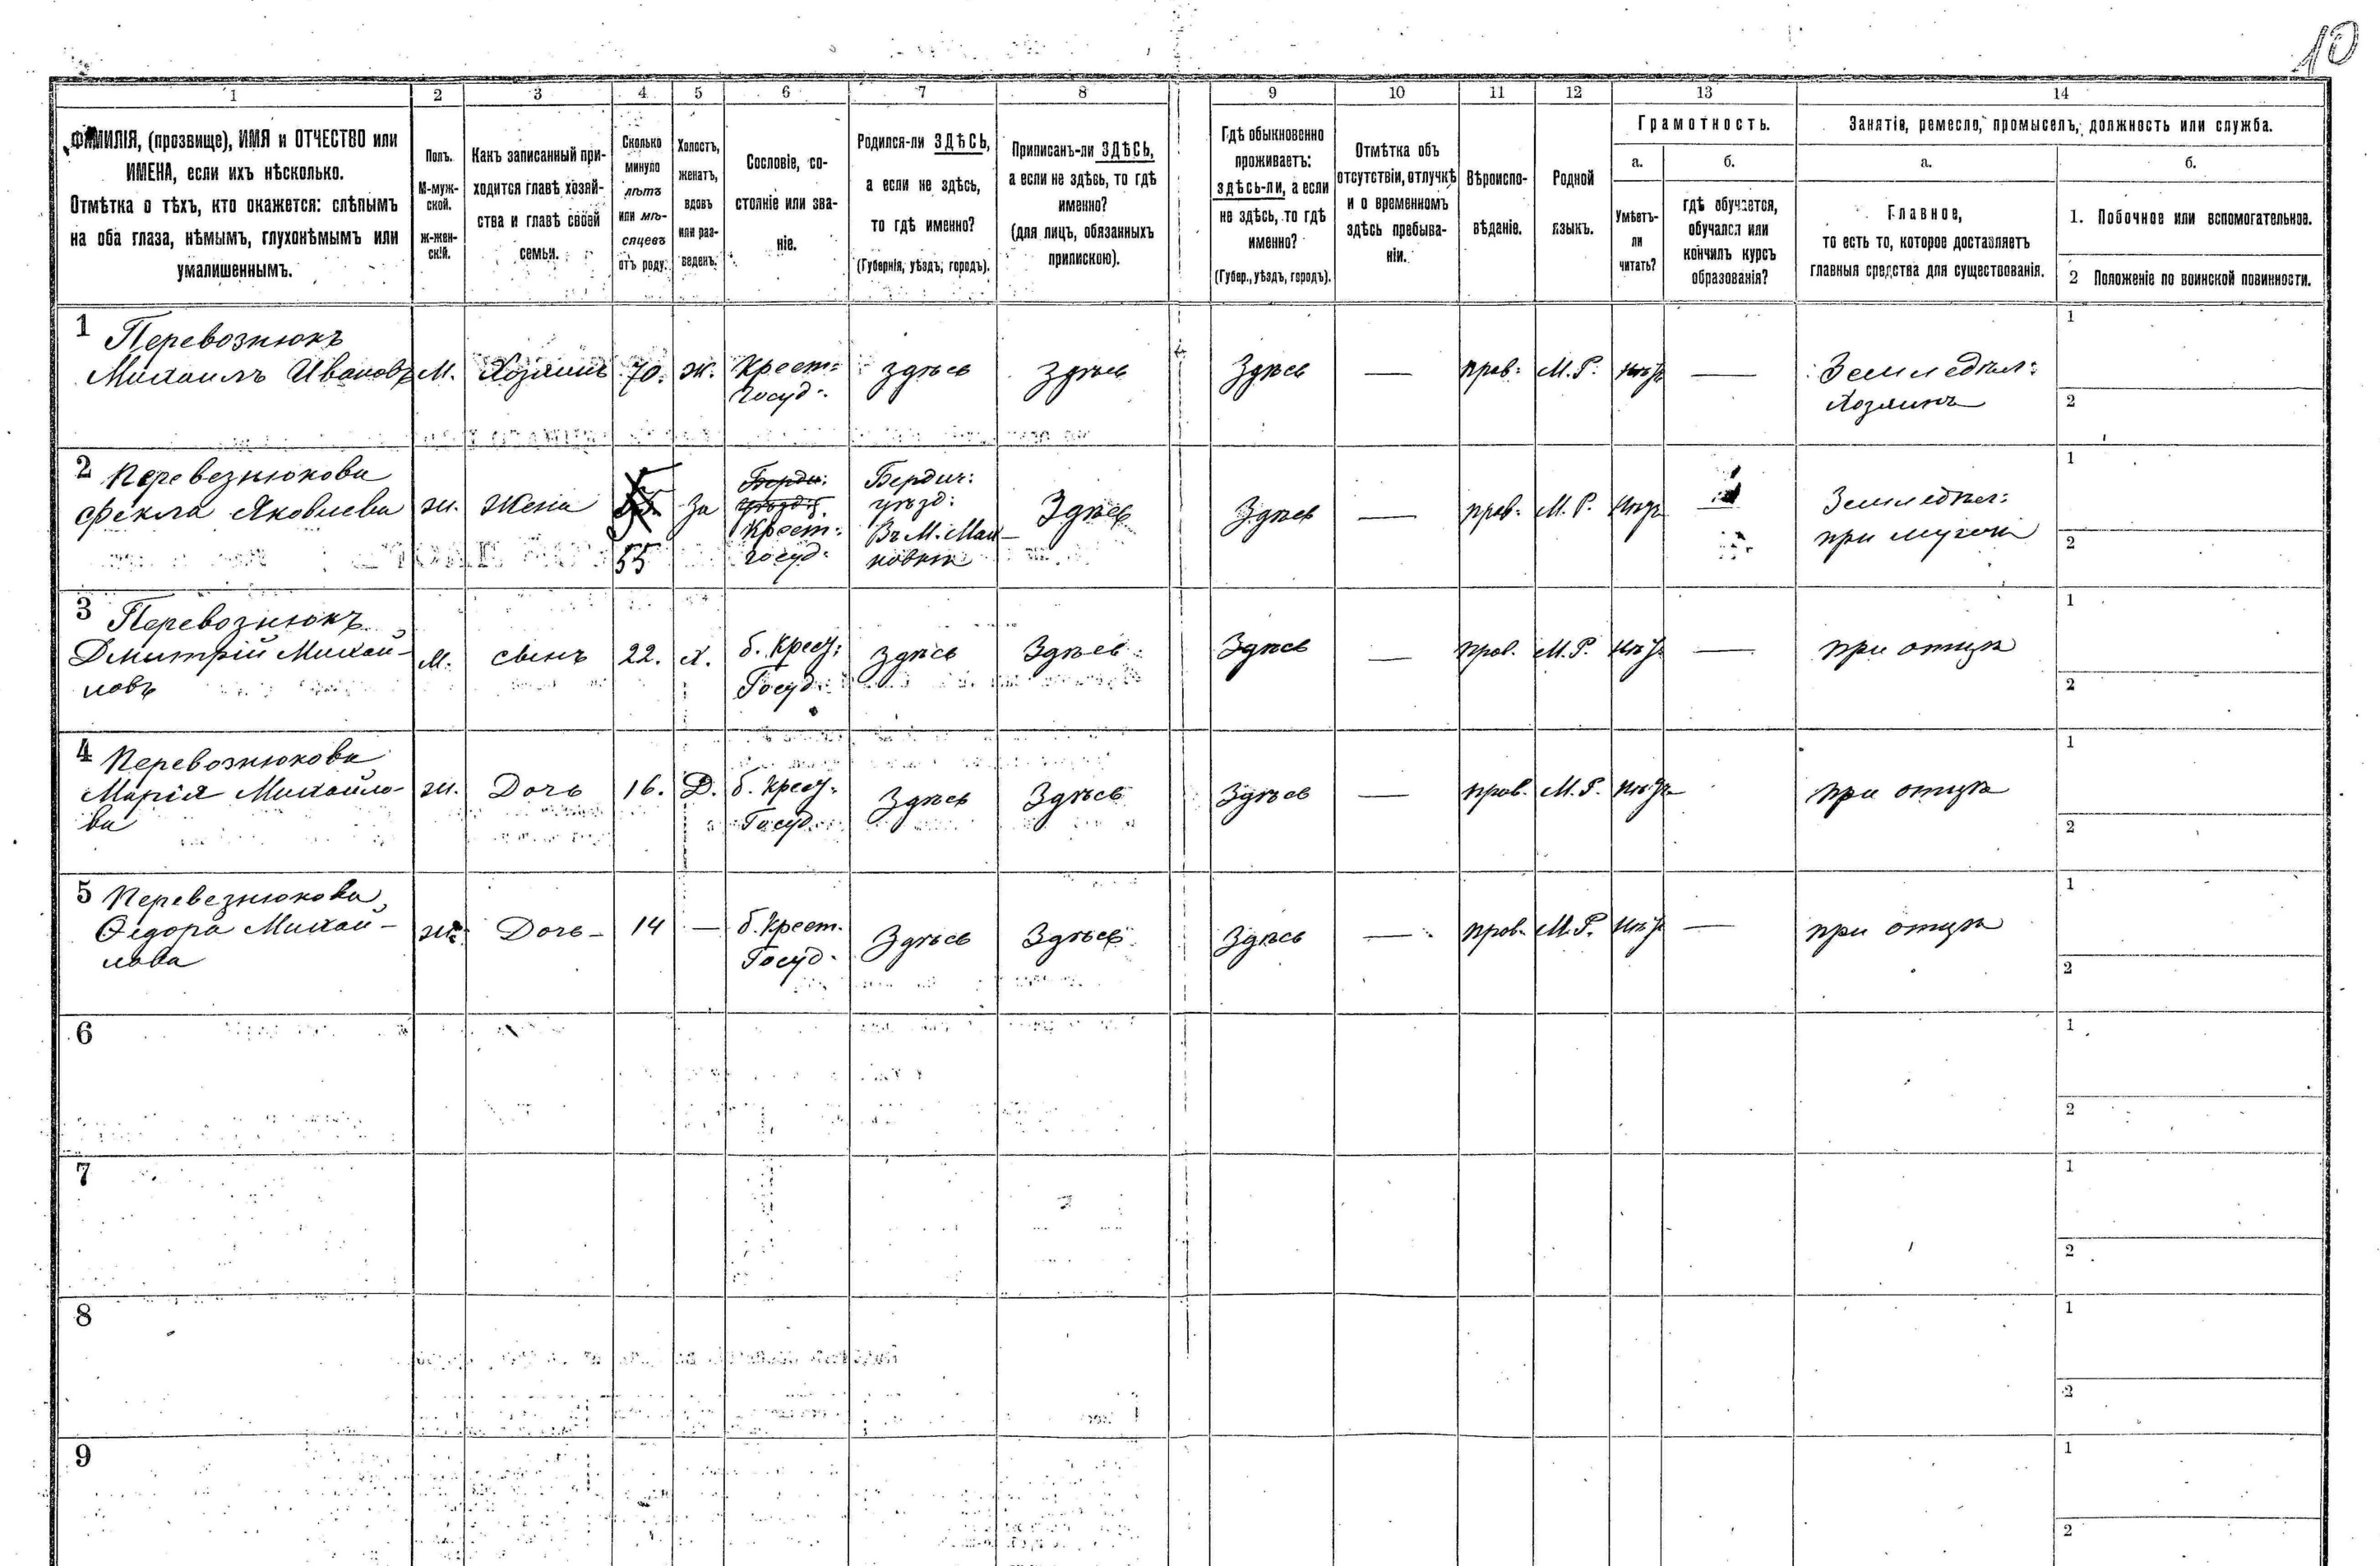 10
1 2 3 4 5 6 7 8 9 10 11 12 13 14
ФАМИЛІЯ, (прозвище), ИМЯ и ОТЧЕСТВО или
ИМЕНА, если ихъ нѣсколько.
Отмѣтка о тѣхъ, кто окажется: слѣпымъ
на оба глаза, нѣмымъ, глухонѣмымъ или
умалишеннымъ.
Полъ.
М-муж-
ской.
ж-жен-
скій.
Какъ записанный при-
ходится главѣ хозяй-
ства и главѣ своей
семьи.
Сколько
минуло
лѣтъ
или мѣ-
сяцевъ
отъ роду.
Холостъ,
женатъ,
вдовъ
или раз-
веденъ.
Сословіе, со-
стояніе или зва-
ніе.
Родился-ли ЗДѢСЬ,
а если не здѣсь,
то гдѣ именно?
(Губернія, уѣздъ, городъ).
Приписанъ-ли ЗДѢСЬ,
а если не здѣсь, то гдѣ
именно?
(для лицъ, обязанныхъ
припискою).
Гдѣ обыкновенно
проживаетъ:
здѣсь-ли, а если
не здѣсь, то гдѣ
именно?
(Губер., уѣздъ, городъ).
Отмѣтка объ
отсутствіи, отлучкѣ
и о временномъ
здѣсь пребыва-
ніи.
Вѣроиспо-
вѣданіе.
Родной
языкъ.
Грамотность.
а.
Умѣетъ-
ли
читать?
б.
гдѣ обучается,
обучался или
кончилъ курсъ
образованія?
Занятіе, ремесло, промыселъ, должность или служба.
а.
Главное,
то есть то, которое доставляетъ
главныя средства для существованія.
б.
1. Побочное или вспомогательное.
2 Положеніе по воинской повинности.
1 Перевознюкъ
Михаилъ Ивановъ М. Хозяинъ 70. ж. Крест: здѣсь здѣсь Здѣсь — прав: М.Р. нѣтъ — Земледѣл:
Госуд: Хозяинъ
1
2
2 Перевезнюкова
Фекла Яковлева ж. жена 55 за Крест: Госуд: Бердич:
уѣзд:
Въ М. Мах-
новкѣ
Здѣсь Здѣсь — прав. М.Р. нѣтъ Земледѣл:
при мужѣ
1
2
3 Перевознюкъ
Дмитрій Михай-
ловъ М. сынъ 22. х. б. Крест: Госуд: Здѣсь Здѣсь Здѣсь — прав. М.Р. нѣтъ — при отцѣ
1
2
4 Перевознюкова
Марія Михайло-
ва ж. Дочь 16. Д. б. Крест: Госуд. Здѣсь Здѣсь Здѣсь — прав. М.Р. нѣтъ при отцѣ
1
2
5 Перевезнюкова
Ѳедора Михай-
лова ж. Дочь 14 — б. Крест. Госуд. Здѣсь Здѣсь Здѣсь — прав. М.Р. нѣтъ — при отцѣ
1
2
6
1
2
7
1
2
8
1
2
9
1
2